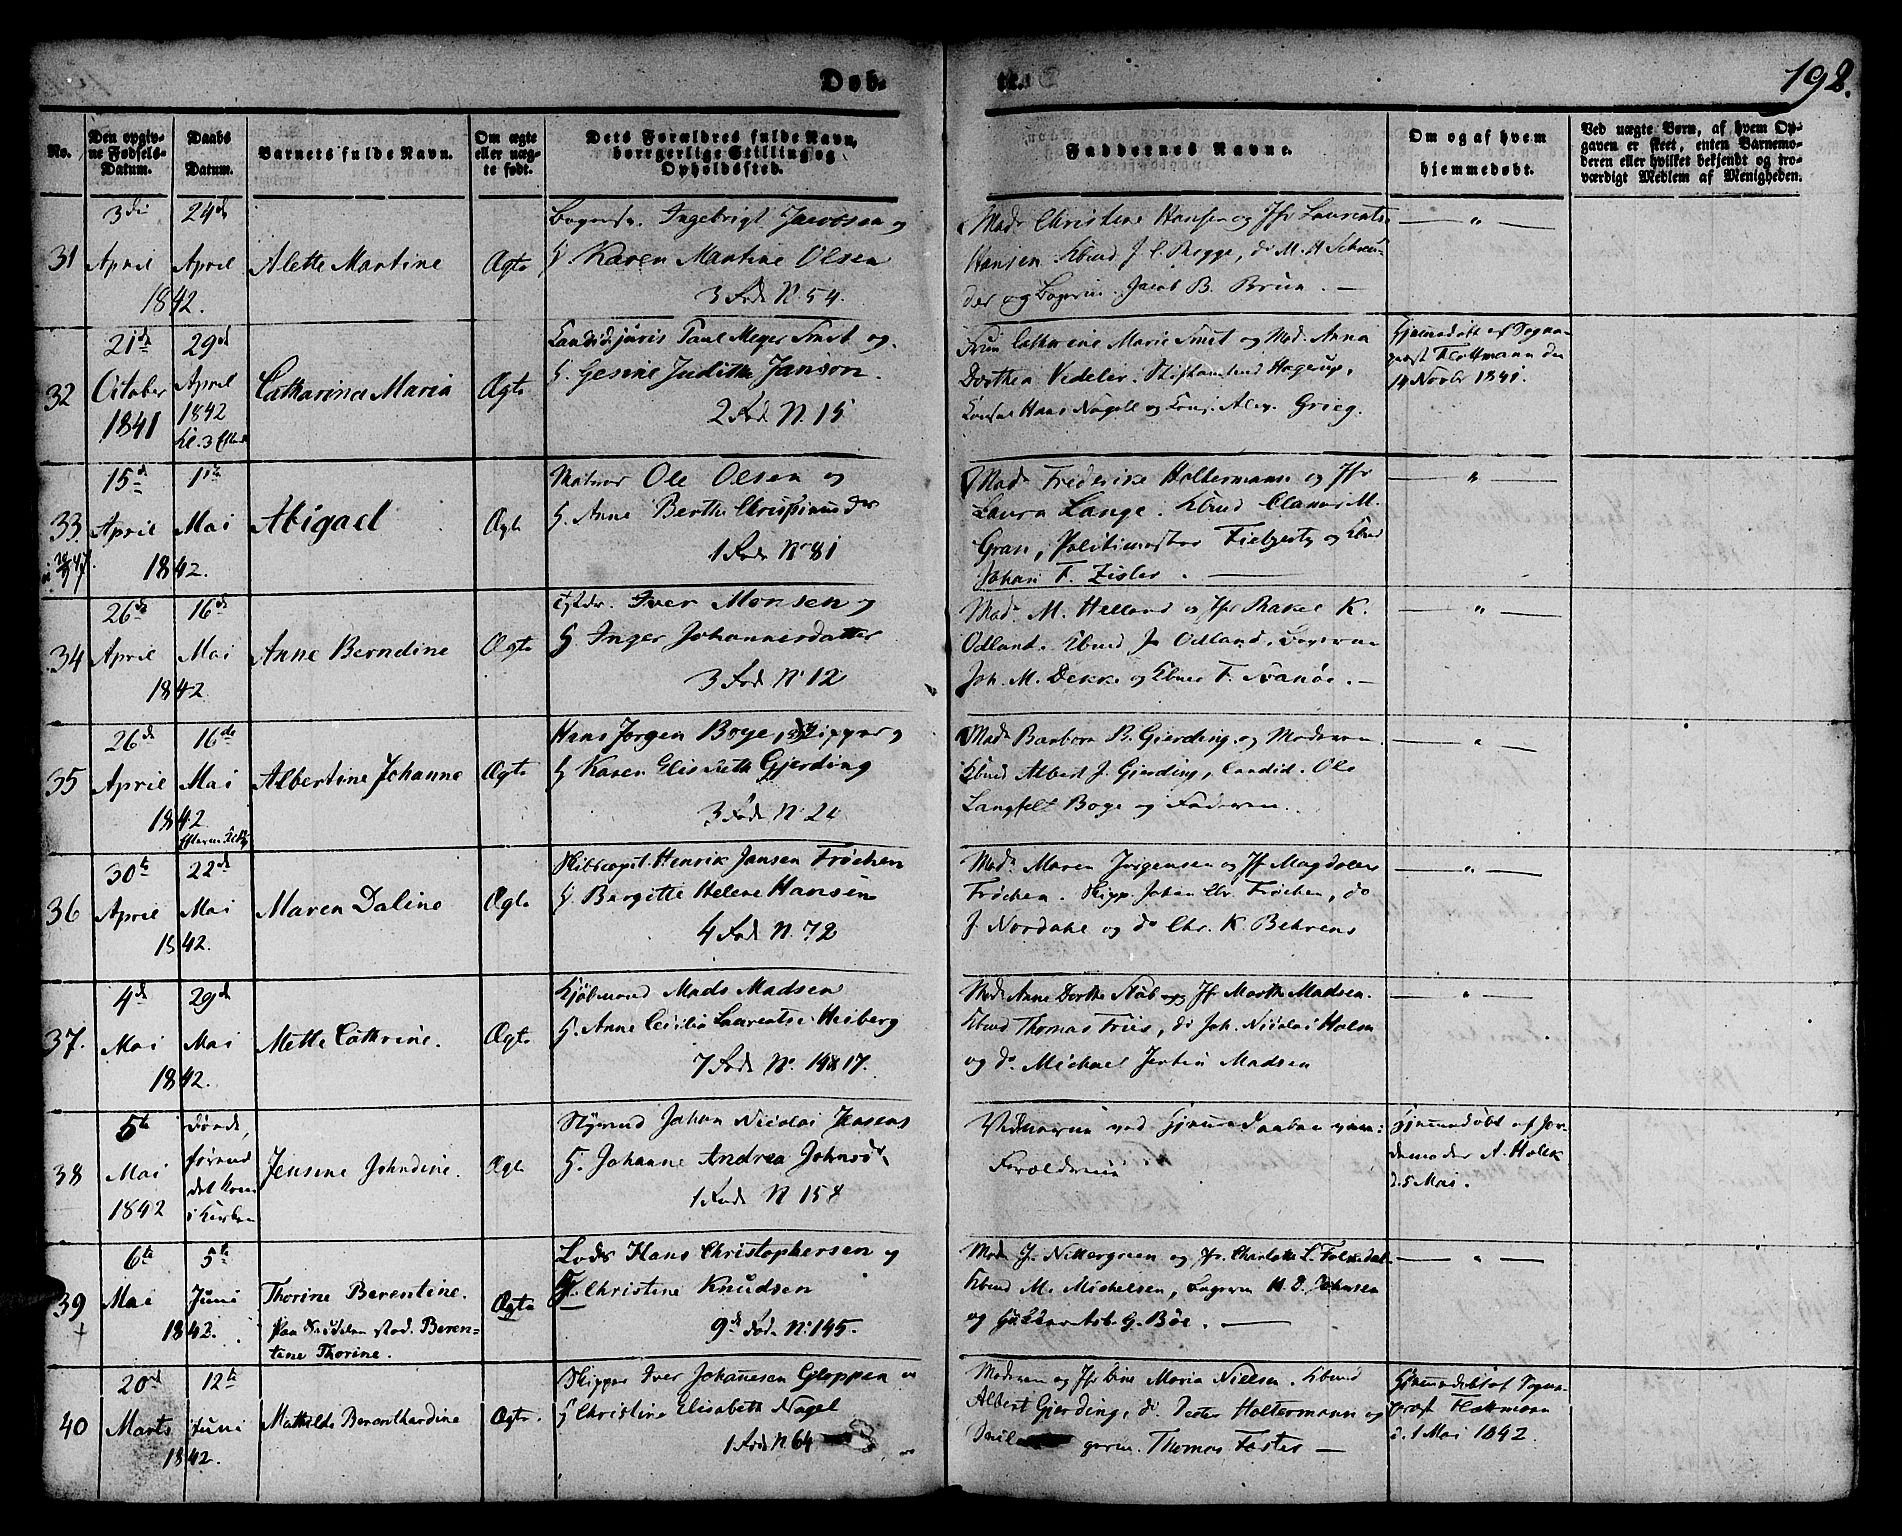 Døb-
te.
198.
No.
Den opgiv-
ne Fødsels-
Datum.
Daabs
Datum.
Barnets fulde Navn.
Om ægte
eller uæg-
te født.
Dets Forældres fulde Navn,
borgerlige Stilling og
Opholdssted.
Faddernes Navne.
Om og af hvem
hjemmedøbt.
Ved uægte Børn, af hvem Op-
gaven er skeet, enten Barnemo-
deren eller hvilket bekjendt og tro-
værdigt Medlem af Menigheden.
31
3die
April
24de
April
1842.
Alette Martine
Ægte
Ingebrigt Jacobsen og
H. Karen Martine Olsen
3 Fod. N. 54.
Mad. Christine Hansen og Jfr Laurentse
Hansen. Kbmd J. C. Rogge, do M. H. Schrøu-
der og Bagersv. Jacob B. Bruun. —
— " —
32
21de
October
1841
29de
April
1842
Kl. 3 Efterm
Catharina Maria
Ægte
Candid. juris Paul Meyer Smit og
H. Gesine Judithe Janson.
2 Fod. N. 15
Fru Cathrine Marie Smit og Mad. Anna
Dorthea Vedeler. Stiftamtmd Hagerup,
Consul Hans Nagell og Cons. Alex. Grieg.
Hjemmedøbt af Sogne-
præst Flottmann den
14 Novbr 1841.
33
15de
April
1ste
Mai
1842.
Abigael
Ægte
Matros Ole Olsen og
H. Anne Berthe Christiansdtr
1 Fod. N. 81
Mad. Frederike Holtermann og Jfr
Laura Lange. Kbmd Claus M.
Gran, Politimester og Kbmd
Johan F. Zisler. —
— " —
34
26de
April
16de
Mai
1842.
Anne Berndine
Ægte
Iver Monsen og
H. Inger Johannesdatter
3 Fod. N. 12
Mad. M. Helland og Jfr Rakel K.
Odland. Kbmd J. Odland, Bagersv.
Joh. M. Dekke og Kbmd F. Svanøe. —
— " —
35
26de
April
16de
Mai
1842.
Albertine Johanne
Ægte
Hans Jørgen Boye, Skipper og
H. Karen Elisabeth Gjerding
3 Fod. N. 24
Mad. Barbora B. Gjerding og Moderen.
Kbmd Albert J. Gjerding, Candid. Ole
Langfelt Boye og Faderen.
— " —
36
30te
April
22de
Mai
1842.
Maren Daline
Ægte
Skibscapt. Henrik Jansen Frøchen
H. Bergitte Helene Hansen
4 Fod. N. 72
Mad. Maren Jørgensen og Jfr Magdalene
Frøchen. Skipp. Johan Chr. Frøchen, do
J. Nordahl og do Chr. K. Behrens
— " —
37.
4de
Mai
29de
Mai
1842.
Mette Cathrine.
Ægte
Kjøbmand Mads Madsen
H. Anne Cecilia Laurentse Heiberg
7 Fod. N. 14 & 17.
Mad. Anne Dorthe og Jfr Marthe Madsen.
Kbmd Thomas Friis, do Joh. Nicolai Holm
og do Michael Jertin Madsen
— " —
38
5te
Mai
1842
Døde,
førend
det kom
i Kirken
Jensine Johndine.
Ægte
Styrmd Johan Nicolai Jensens
H. Johanne Andrea Johnsdtr
1 Fod. N 158
Vidnerne ved Hjemmedaaben vare:
Forældrene
Hjemmedøbt af Jor-
demoder A. Holck
d. 5 Mai.
39
+
6te
Mai
5te
Juni
1842.
Thorine Berentine.
paa Seddelen stod. Beren-
tine Thorine.
Ægte
Lods Hans Christophersen og
H. Christine Knudsen
9de Fod. N. 145.
Mad. J. Nittergreen og Jfr. Charlotte L. Folkedal.
Kbmd M. Michelsen, Bagersv. H. D. Johnsen
og Asb. G. Bøe. —
— " —
40
20de
Marts
12te
Juni
1842.
Mathilde Berenthardine
Ægte.
Skipper Iver Johannesen Gloppen og
H. Christine Elisabeth Nagel
1 Fod. N 64
Moderen og Jfr Line Maria Nielsen. Kbmd
Albert Gjerding, do Peter Holtermann og
Thomas Foster —
Hjemmedøbt af Sogne-
præst Flottmann
d. 1 Mai 1842.